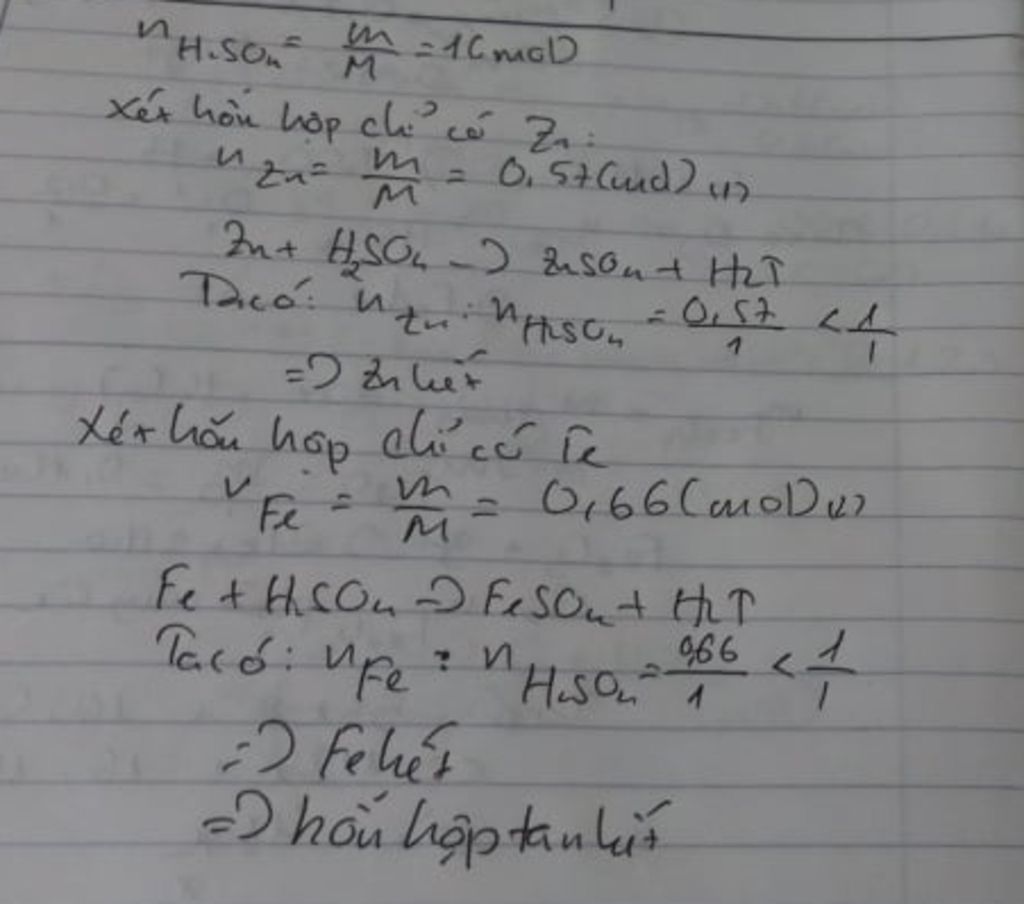 n H₂SO₄ = m/M = 1(mol)
Xét hỗn hợp chỉ có Zn:
n Zn = m/M = 0,57(mol) (1)
Zn + H₂SO₄ -> ZnSO₄ + H₂↑
Ta có: n Zn : n H₂SO₄ = 0,57/1 < 1/1
=> Zn hết
Xét hỗn hợp chỉ có Fe
n Fe = m/M = 0,66(mol) (2)
Fe + H₂SO₄ -> FeSO₄ + H₂↑
Ta có: n Fe : n H₂SO₄ = 0,66/1 < 1/1
=> Fe hết
=> hỗn hợp tan hết